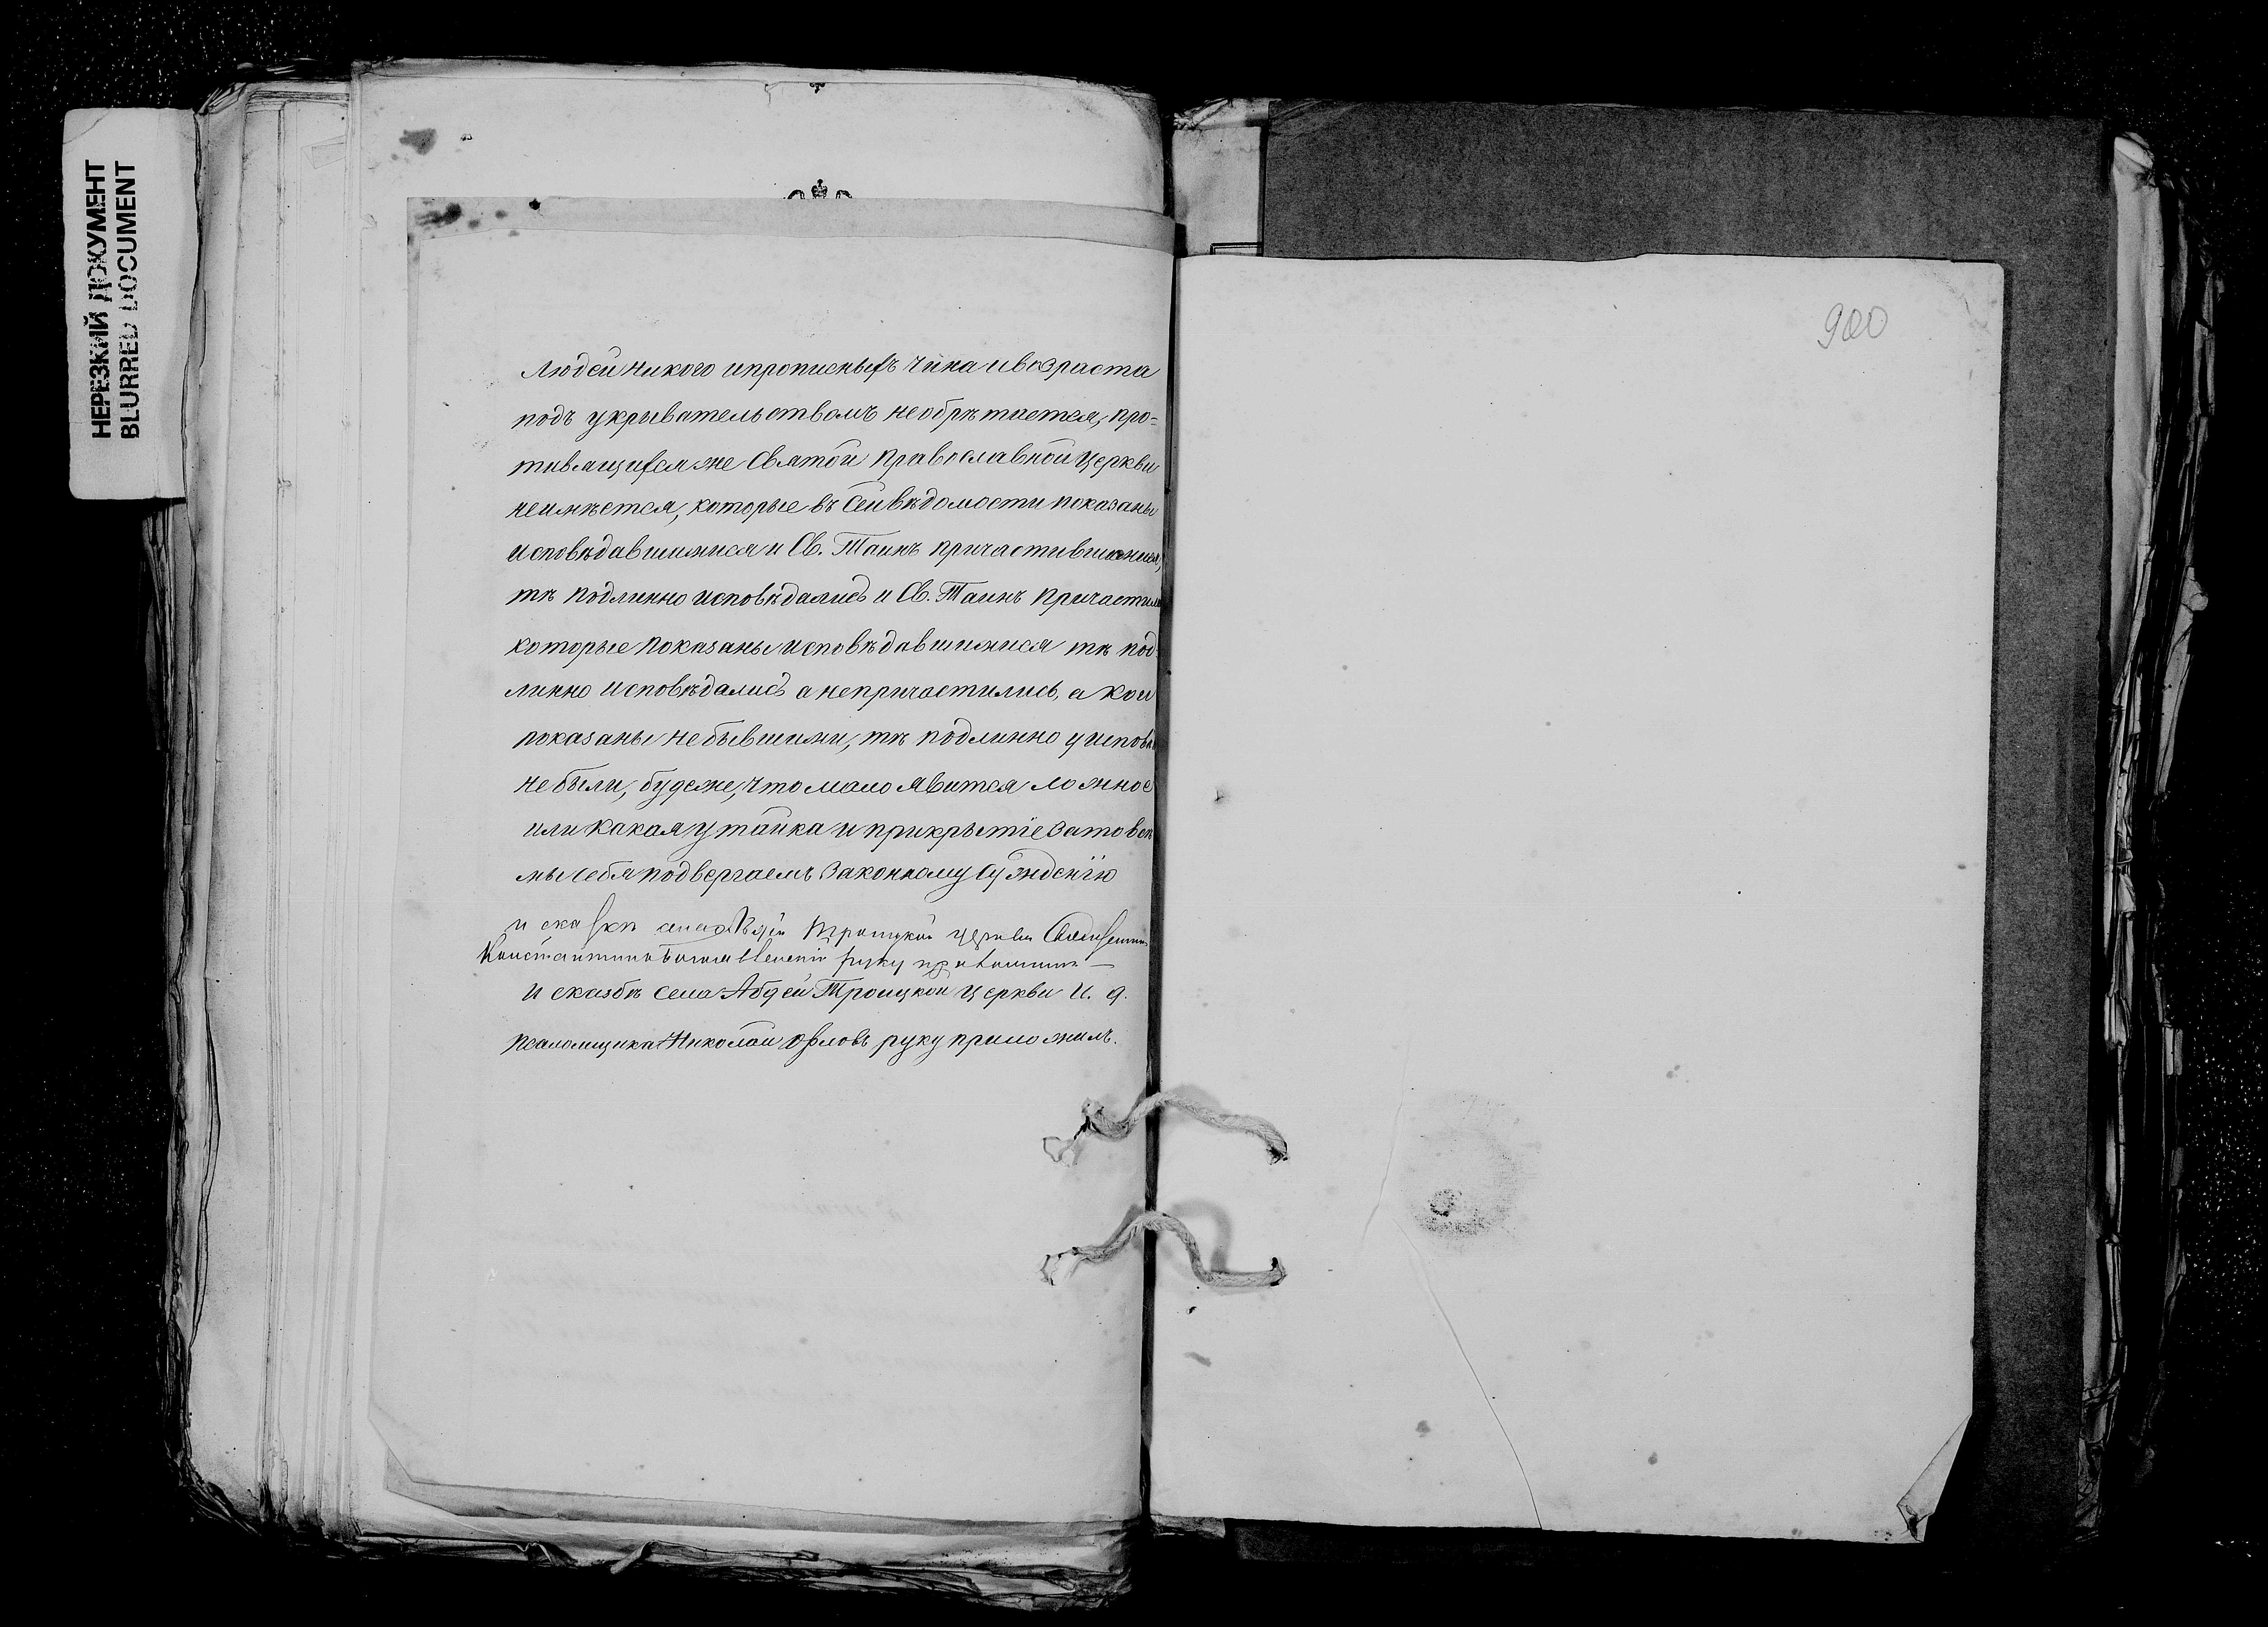 НЕРЕЗКИЙ ДОКУМЕНТ
BLURRED DOCUMENT
людей никого и прописныхъ чина и возраста
подъ укривательствомъ необрѣтается, про=
тивящихся же Святой Православной Церкви
неимѣется, которые въ сей вѣдомости показаны
исповѣдавшимися и Св. Таинъ причастившимися,
тѣ подлинно исповѣдались и Св. Таинъ причастили
которые показаны исповѣдавшимися тѣ под-
линно исповѣдались а непричастились, а кои
показаны небывшими, тѣ подлинно у исповѣ
небыли, будеже, что мало явится ложное
или какая утайка и прикрытіе за то в
мы себя подвергаемъ законному сужденію
и села Троицкой церкви Священник
Константинъ руку
И сказбѣ села Абдей Троицкой Церкви И. д.
псаломщика Николай Орловъ руку приложилъ.
900